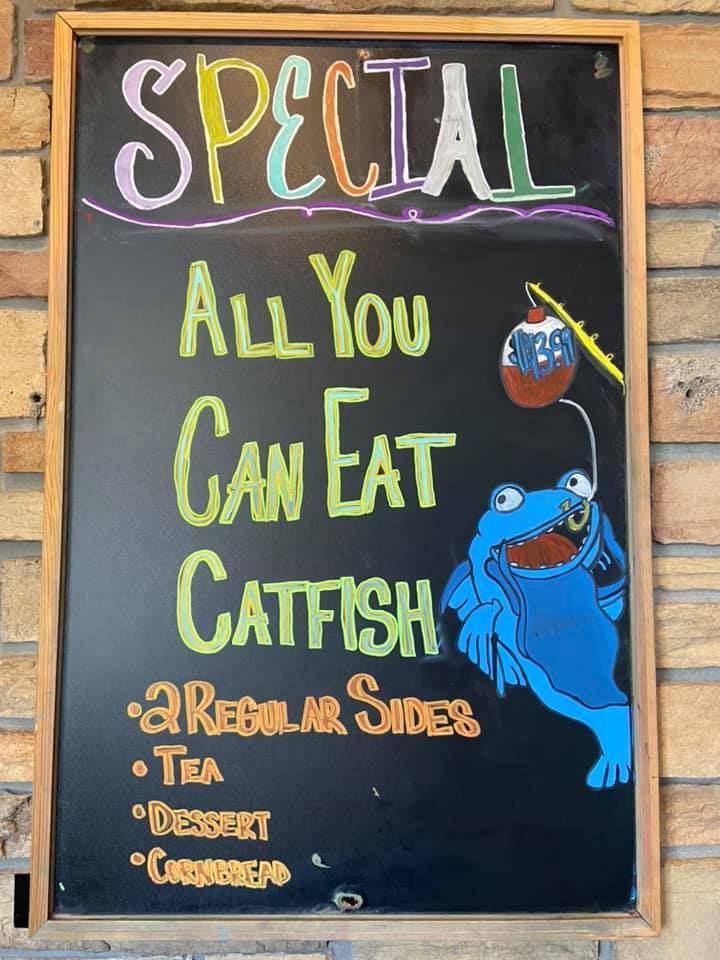 SPECIAL
ALL YOU
$13.99
CAN EAT
CATFISH
•2 REGULAR SIDES
•TEA
•DESSERT
•CORNBREAD